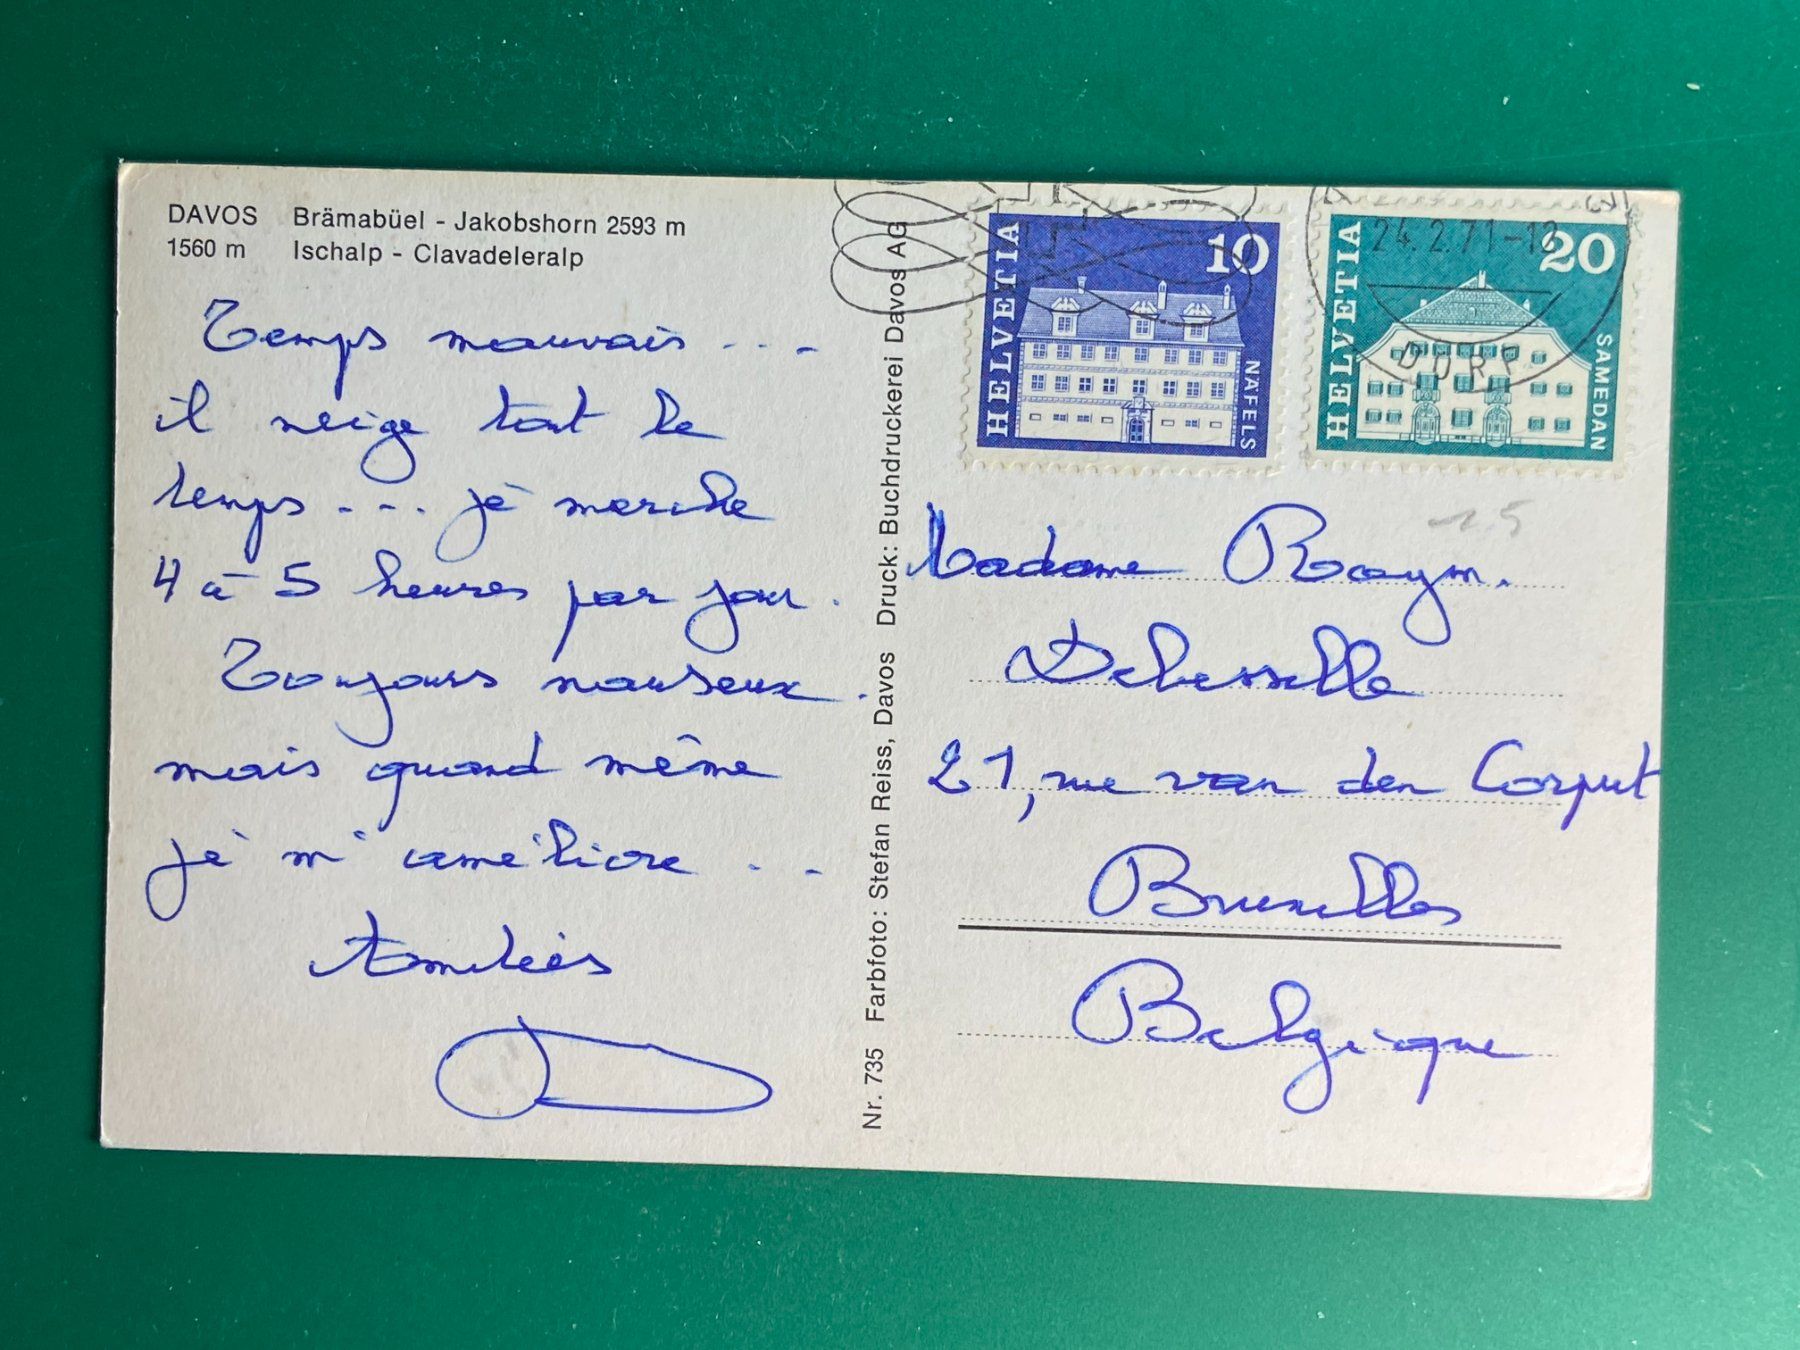 DAVOS Brämabüel - Jakobshorn 2593 m
1560 m Ischalp - Clavadeleralp
Temps mauvais ...
il neige tout le
temps .... je marche
4 à 5 heures par jour.
Toujours nauseux.
mais quand même
je m'améliore ..
Amitiés
Nr. 735 Farbfoto: Stefan Reiss, Davos Druck: Buchdruckerei Davos AG
HELVETIA 10 NÄFELS
HELVETIA 20 SAMEDAN
24.2.71-12
DORF
15
Madame Raym.
21, rue van den Corput
Bruxelles
Belgique